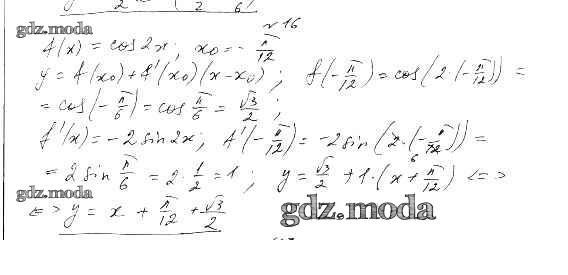 y = 2 (2 6)
gdz.moda
№ 16
f(x) = cos 2x; x₀ = - π/12
y = f(x₀) + f'(x₀)(x - x₀); f(-π/12) = cos(2·(-π/12)) =
= cos(-π/6) = cos π/6 = √3/2;
f'(x) = -2 sin 2x; f'(-π/12) = -2 sin(2·(-π/12)) =
6
= 2 sin π/6 = 2·1/2 = 1; y = √3/2 + 1·(x + π/12) <=>
gdz.moda
<=> y = x + π/12 + √3/2
gdz.moda